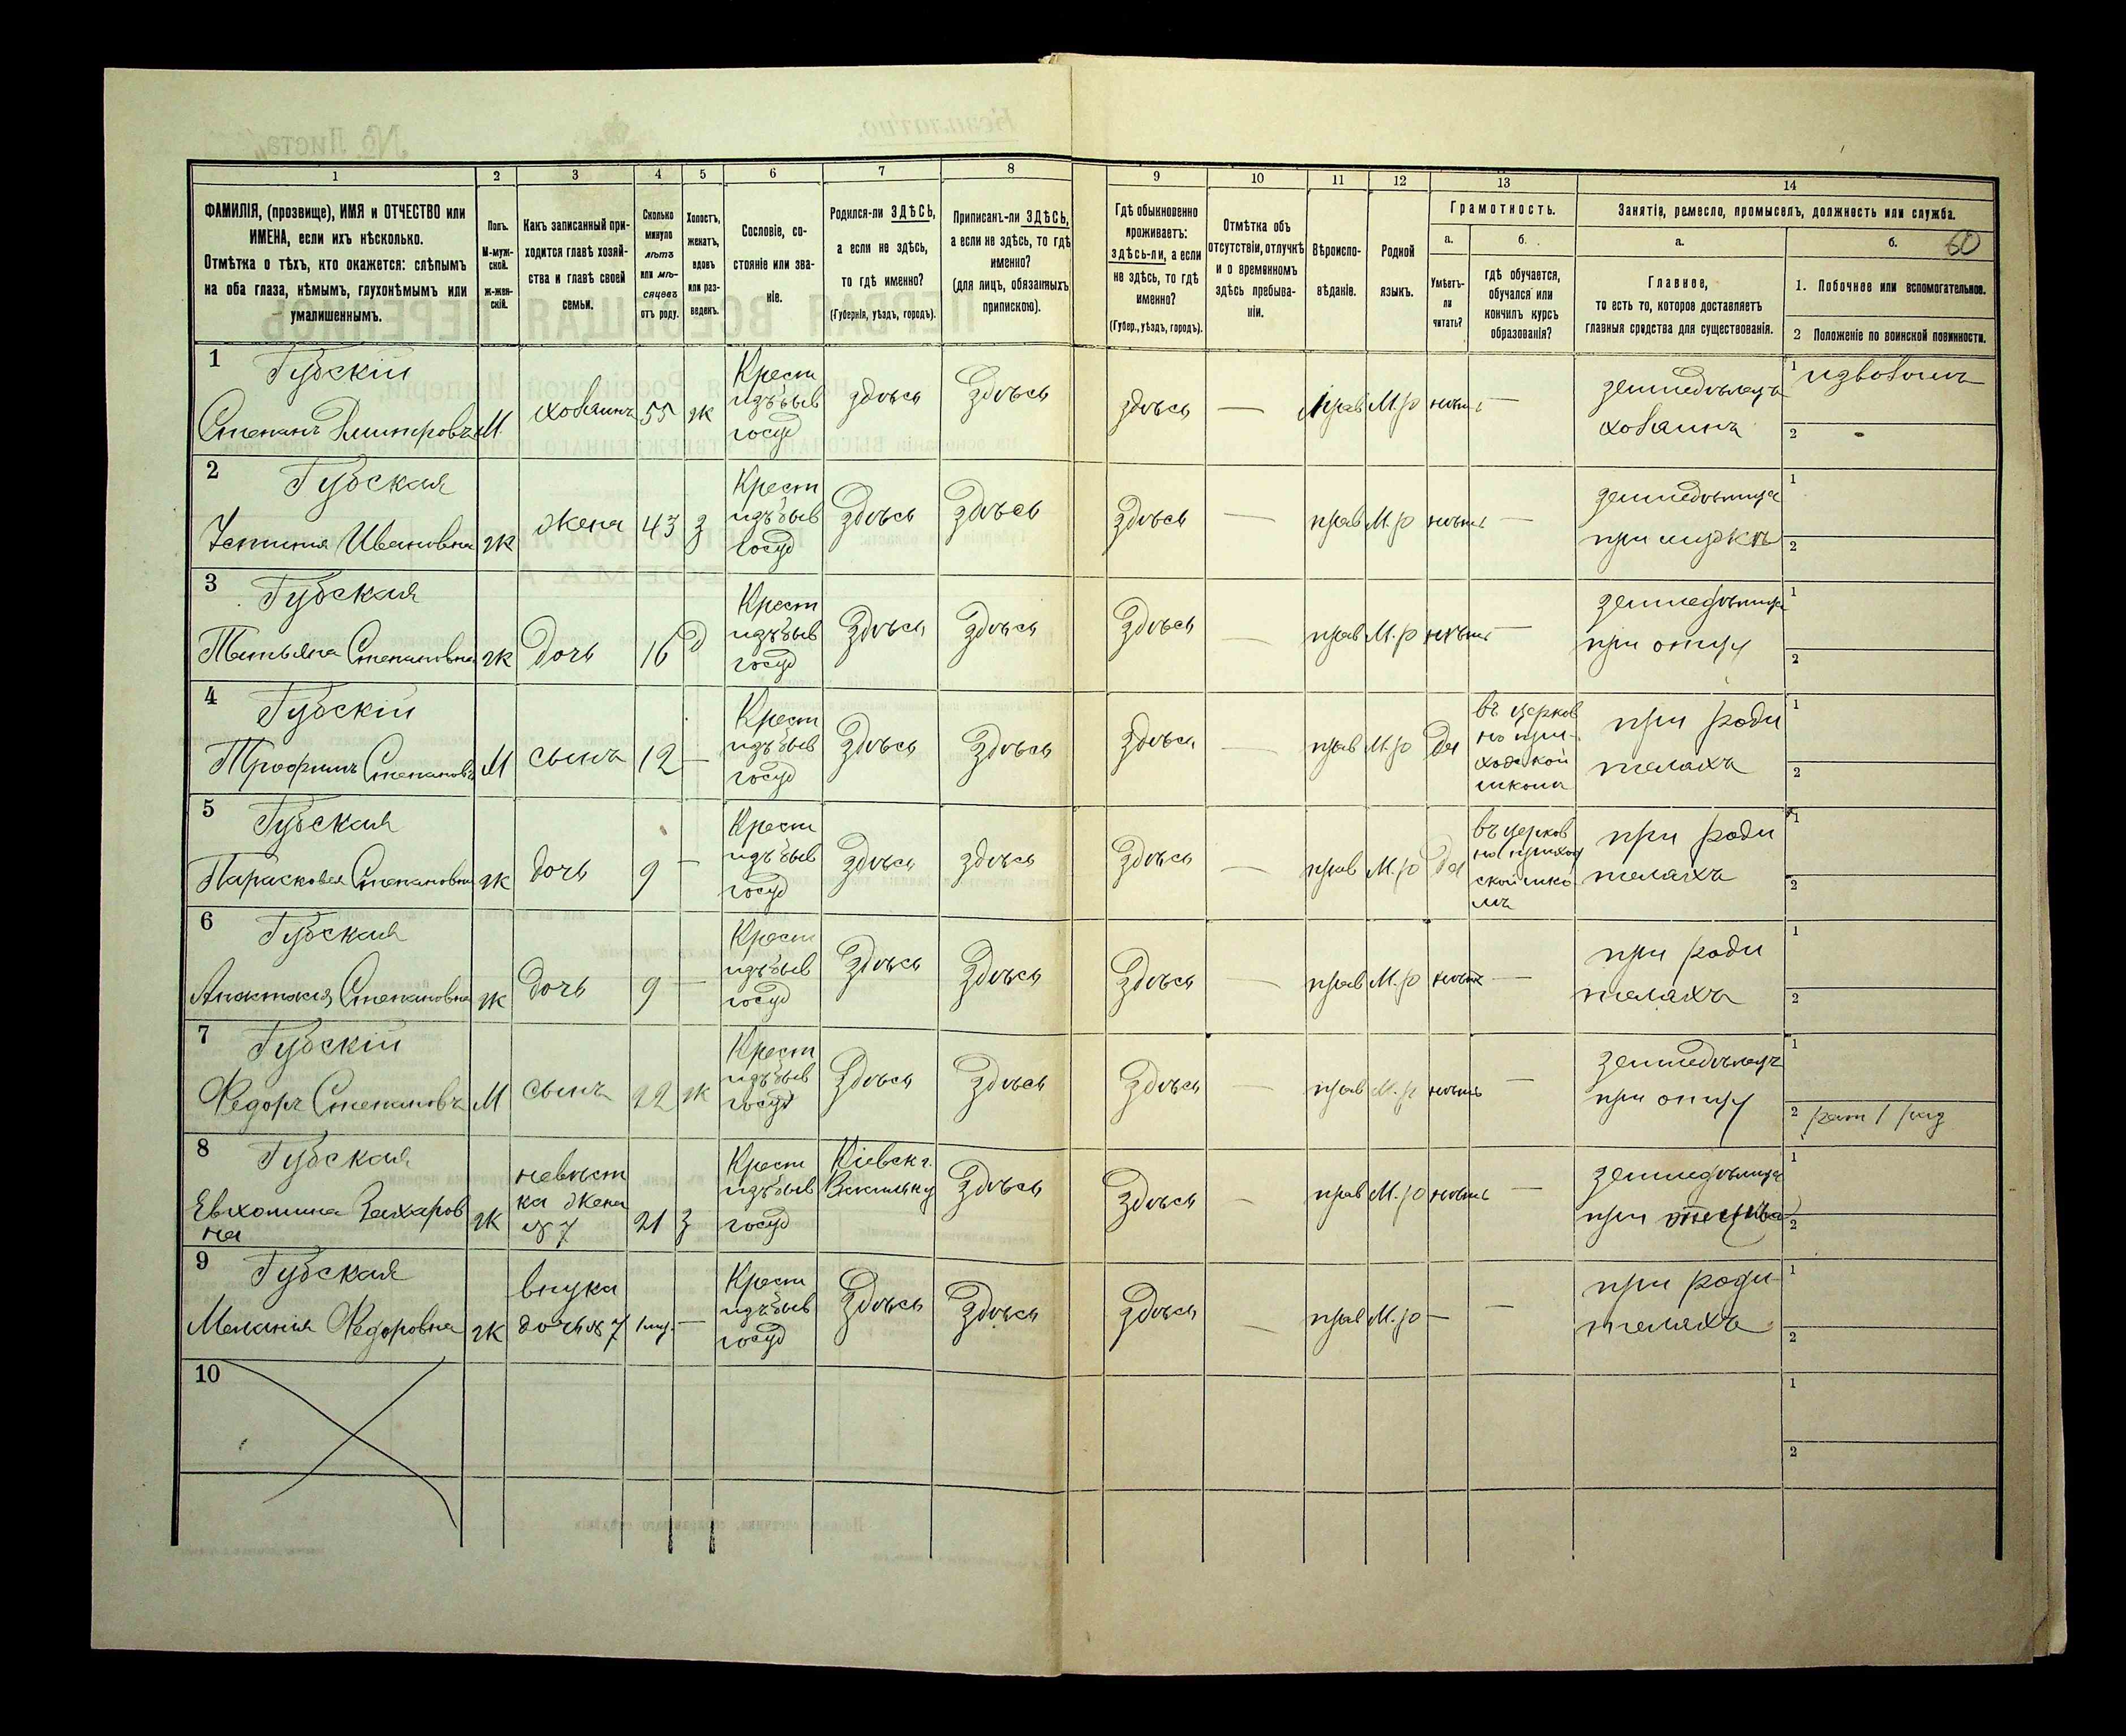 1 2 3 4 5 6 7 8 9 10 11 12 13 14
ФАМИЛІЯ, (прозвище), ИМЯ и ОТЧЕСТВО или
ИМЕНА, если ихъ нѣсколько.
Отмѣтка о тѣхъ, кто окажется: слѣпымъ
на оба глаза, нѣмымъ, глухонѣмымъ или
умалишеннымъ.
Полъ.
М-муж-
ской.
ж-жен-
скій.
Какъ записанный при-
ходится главѣ хозяй-
ства и главѣ своей
семьи.
Сколько
минуло
лѣтъ
или мѣ-
сяцевъ
отъ роду.
Холостъ,
женатъ,
вдовъ
или раз-
веденъ.
Сословіе, со-
стояніе или зва-
ніе.
Родился-ли ЗДѢСЬ,
а если не здѣсь,
то гдѣ именно?
(Губернія, уѣздъ, городъ).
Приписанъ-ли ЗДѢСЬ,
а если не здѣсь, то гдѣ
именно?
(для лицъ, обязанныхъ
припискою).
Гдѣ обыкновенно
проживаетъ:
ЗДѢСЬ-ли, а если
не здѣсь, то гдѣ
именно?
(Губер., уѣздъ, городъ).
Отмѣтка объ
отсутствіи, отлучкѣ
и о временномъ
здѣсь пребыва-
ніи.
Вѣроиспо-
вѣданіе.
Родной
языкъ.
Грамотность.
а.
Умѣетъ-
ли
читать?
б.
гдѣ обучается,
обучался или
кончилъ курсъ
образованія?
Занятіе, ремесло, промыселъ, должность или служба.
а.
Главное,
то есть то, которое доставляетъ
главныя средства для существованія.
б. 60
1. Побочное или вспомогательное.
2 Положеніе по воинской повинности.
1 Губскій
Степанъ Дмитровъ М хозаинъ 55 ж
Крест
изъ быв
госуд
здѣсь здѣсь здѣсь — прав М.р нѣтъ —
земледѣлецъ
хозаинъ
1 извозчикъ
2 -
2 Губская
Устинія Ивановна ж жена 43 з
Крест
изъ быв
госуд
здѣсь здѣсь здѣсь — прав М.р нѣтъ —
земледѣлица
при мужѣ
1
2
3 Губская
Татьяна Степановна ж дочь 16 д
Крест
изъ быв
госуд
здѣсь здѣсь здѣсь — прав М.р нѣтъ —
земледѣлица
при отцу
1
2
4 Губскій
Трофимъ Степановъ М сынъ 12 —
Крест
изъ быв
госуд
здѣсь здѣсь здѣсь — прав М.р да
въ церков
но при-
ходской
школи
при роди
телахъ
1
2
5 Губская
Парасковея Степановна ж дочь 9 —
Крест
изъ быв
госуд
здѣсь здѣсь здѣсь — прав М.р да
въ церков
но приход
ской шко
лѣ
при роди
телахъ
1
2
6 Губская
Анастасія Степановна ж дочь 9 —
Крест
изъ быв
госуд
здѣсь здѣсь здѣсь — прав М.р нѣтъ —
при роди
телахъ
1
2
7 Губскій
Федоръ Степановъ М сынъ 22 ж
Крест
изъ быв
госуд
здѣсь здѣсь здѣсь — прав М.р нѣтъ —
земледѣлецъ
при отцу
1
2 рат 1 раз
8 Губская
Евхотина Захаров
на ж
невѣст
ка жена
№ 7
21 з
Крест
изъ быв
госуд
Кіевск г.
Васильк у
здѣсь здѣсь — прав М.р нѣтъ —
земледѣлица
при
1
2
9 Губская
Меланія Федоровна ж
внука
дочь № 7
1 мѣс. —
Крест
изъ быв
госуд
здѣсь здѣсь здѣсь — прав М.р — —
при роди-
теляхъ
1
2
10
1
2